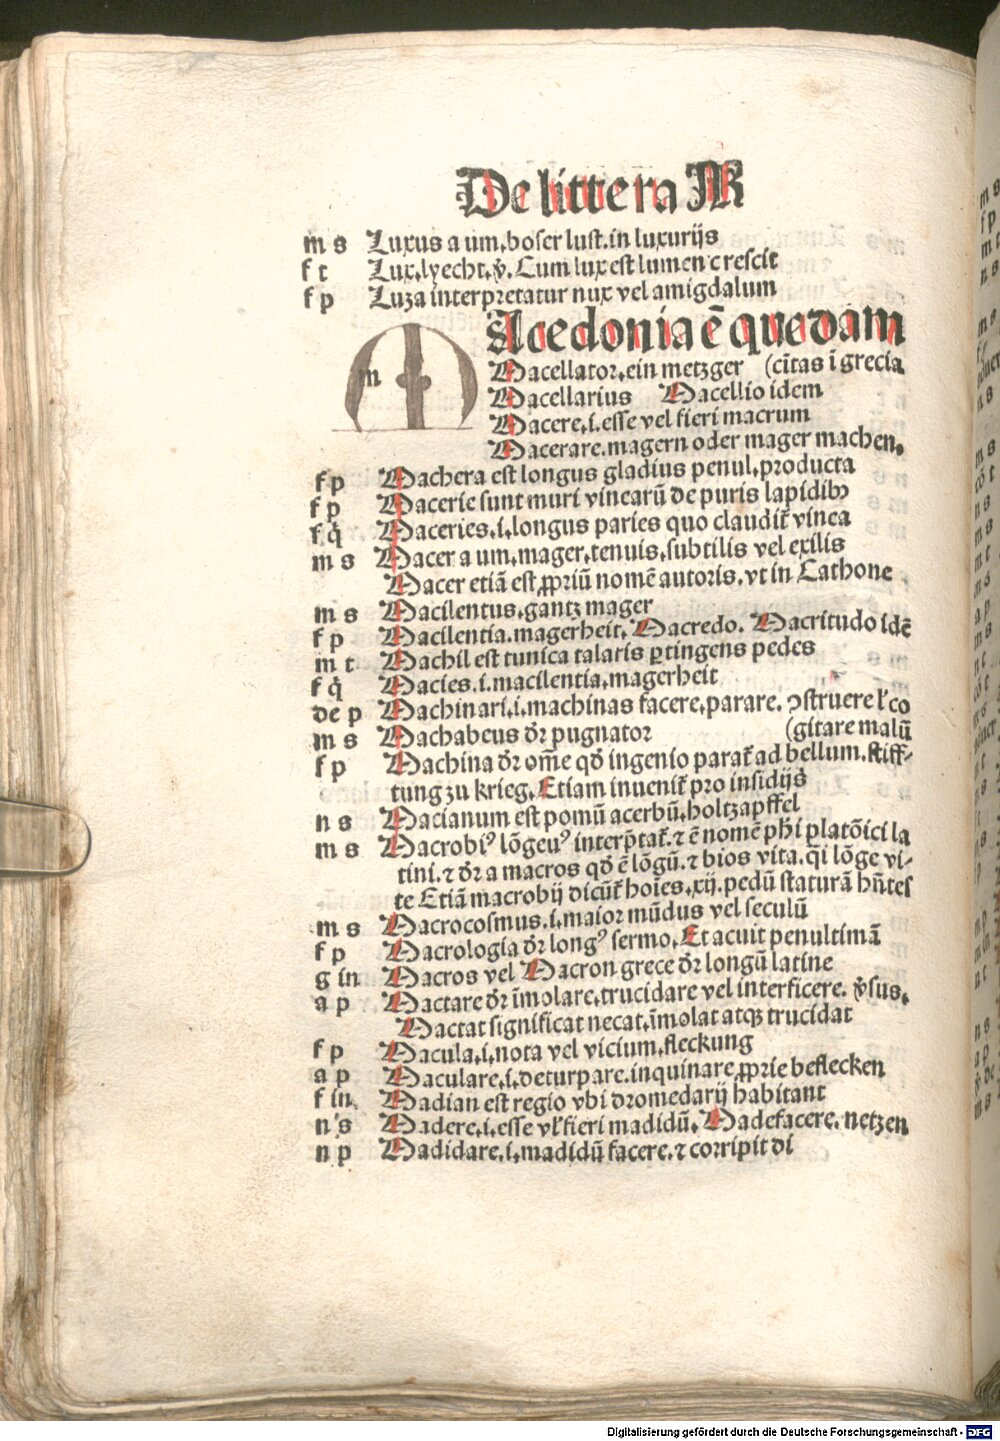 De littera M
m s Luxus a um. boser lust. in luxurijs
f t Lux. lyecht. v̓. Cum lux est lumen crescit
f p Luza interpretatur nux vel amigdalum
m Acedonia ē quedam
Macellator. ein metzger (cītas ī grecia
Macellarius Macellio idem
Macere. i. esse vel fieri macrum
Macerare. magern oder mager machen.
f p Machera est longus gladius penul. producta
f p Macerie sunt muri vinearū de puris lapidibꝫ
f q̄ Maceries. i. longus paries quo claudit᷑ vinea
m s Macer a um. mager. tenuis. subtilis vel exilis
Macer etiā est ꝓpriū nomē autoris. vt in Cathone
m s Macilentus. gantz mager
f p Macilentia. magerheit. Macredo. Macritudo idē
m t Machil est tunica talaris ꝑtingens pedes
f q̄ Macies. i. macilentia. magerheit
de p Machinari. i. machinas facere. parare. ꝯstruere ľ co
m s Machabeus dr̄ pugnator (gitare malū
f p Machina dr̄ om̄e qd̄ ingenio parat᷑ ad bellum. stiff-
tung zu krieg. Etiam inuenit᷑ pro insidijs
n s Macianum est pomū acerbū. holtzapffel
m s Macrobiꝰ lōgeuꝰ interp̄tat᷑. ⁊ ē nomē ph̄i platōici la
tini. ⁊ dr̄ a macros qd̄ ē lōgū. ⁊ bios vita. q̄i lōge vi-
te Etiā macrobij dicūt᷑ hoīes. xij. pedū staturā hn̄tes
m s Macrocosmus. i. maior mūdus vel seculū
f p Macrologia dr̄ longꝰ sermo. Et acuit penultimā
g in Macros vel Macron grece dr̄ longū latine
a p Mactare dr̄ īmolare. trucidare vel interficere. v̓sus.
Mactat significat necat. īmolat atqꝫ trucidat
f p Macula. i. nota vel vicium. fleckung
a p Maculare. i. deturpare. inquinare. ꝓprie beflecken
f in Madian est regio vbi dromedarij habitant
n s Madere. i. esse vľ fieri madidū. Madefacere. netzen
n p Madidare. i. madidū facere. ⁊ corripit di
Digitalisierung gefördert durch die Deutsche Forschungsgemeinschaft - DFG